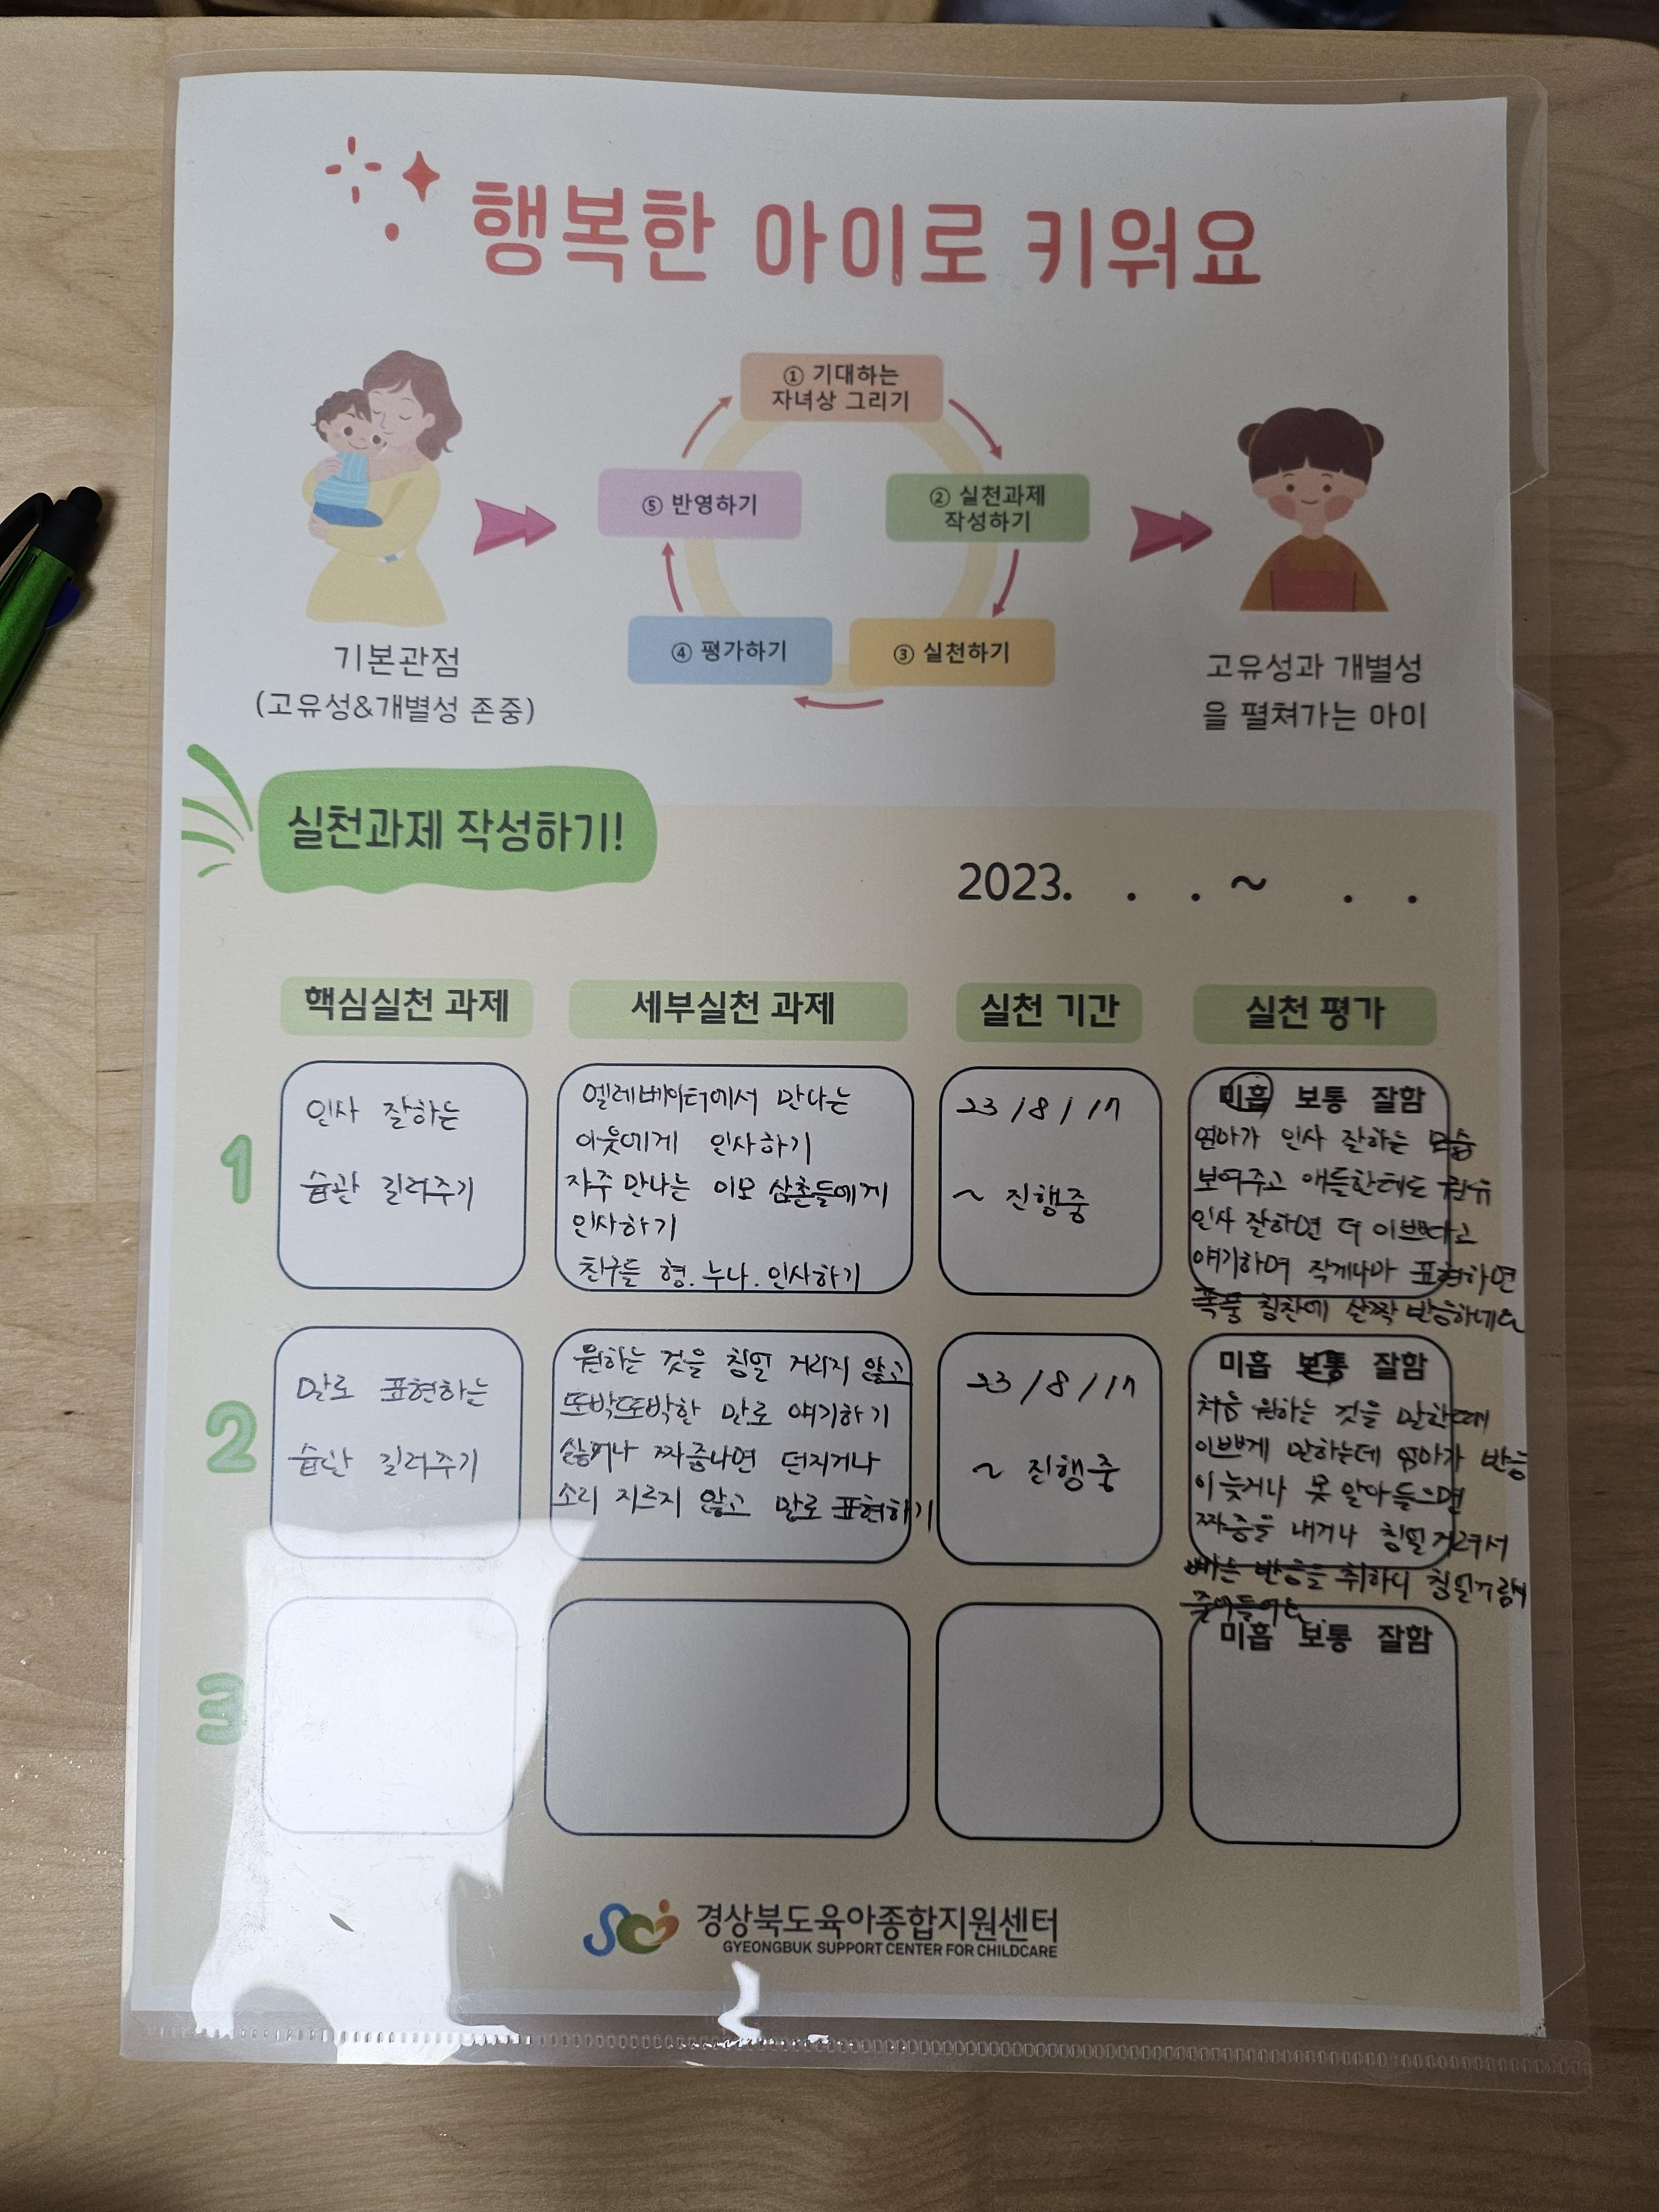 행복한 아이로 키워요
① 기대하는
자녀상 그리기
② 실천과제
작성하기
③ 실천하기
④ 평가하기
⑤ 반영하기
기본관점
(고유성&개별성 존중)
고유성과 개별성
을 펼쳐가는 아이
실천과제 작성하기!
2023. . . ~ . .
핵심실천 과제
세부실천 과제
실천 기간
실천 평가
1
인사 잘하는
습관 길러주기
엘레베이터에서 만나는
이웃에게 인사하기
자주 만나는 이모 삼촌들에게
인사하기
친구들 형. 누나. 인사하기
23/8/17
~ 진행중
미흡 보통 잘함
엄마가 인사 잘하는 모습
보여주고 애들한테도 권유
인사 잘하면 더 이쁘다고
얘기하며 작게나마 표현하면
폭풍 칭찬에 살짝 반응하네요
2
말로 표현하는
습관 길러주기
원하는 것을 칭얼 거리지 않고
또박또박한 말로 얘기하기
싫거나 짜증나면 던지거나
소리 지르지 않고 말로 표현하기
23/8/17
~ 진행중
미흡 보통 잘함
처음 원하는 것을 말할때
이쁘게 말하는데 엄마가 반응
이 늦거나 못 알아 들으면
짜증을 내거나 칭얼거려서
빠른 반응을 취하니 칭얼거림이
줄어들어요.
3
미흡 보통 잘함
경상북도육아종합지원센터
GYEONGBUK SUPPORT CENTER FOR CHILDCARE